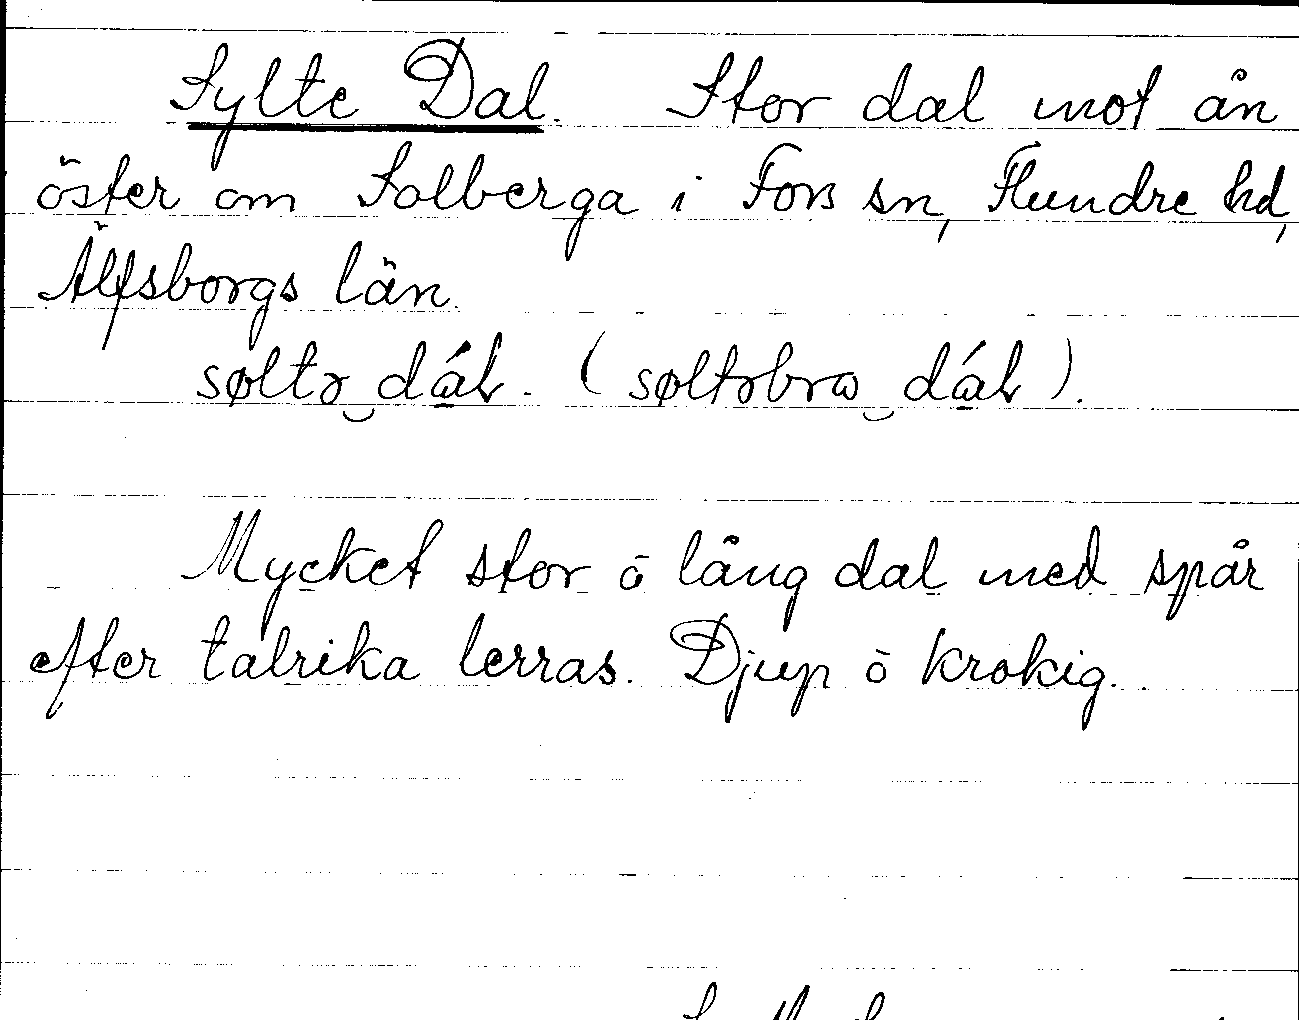 Sylte Dal. Stor dal mot ån
öster om Solberga i Fors sn, Flundre hd,
Älfsborgs län.
søltɔ dáƚ. (søltɔbrɷ dáƚ).
Mycket stor ō lång dal med spår
efter talrika lerras. Djup ō krokig.